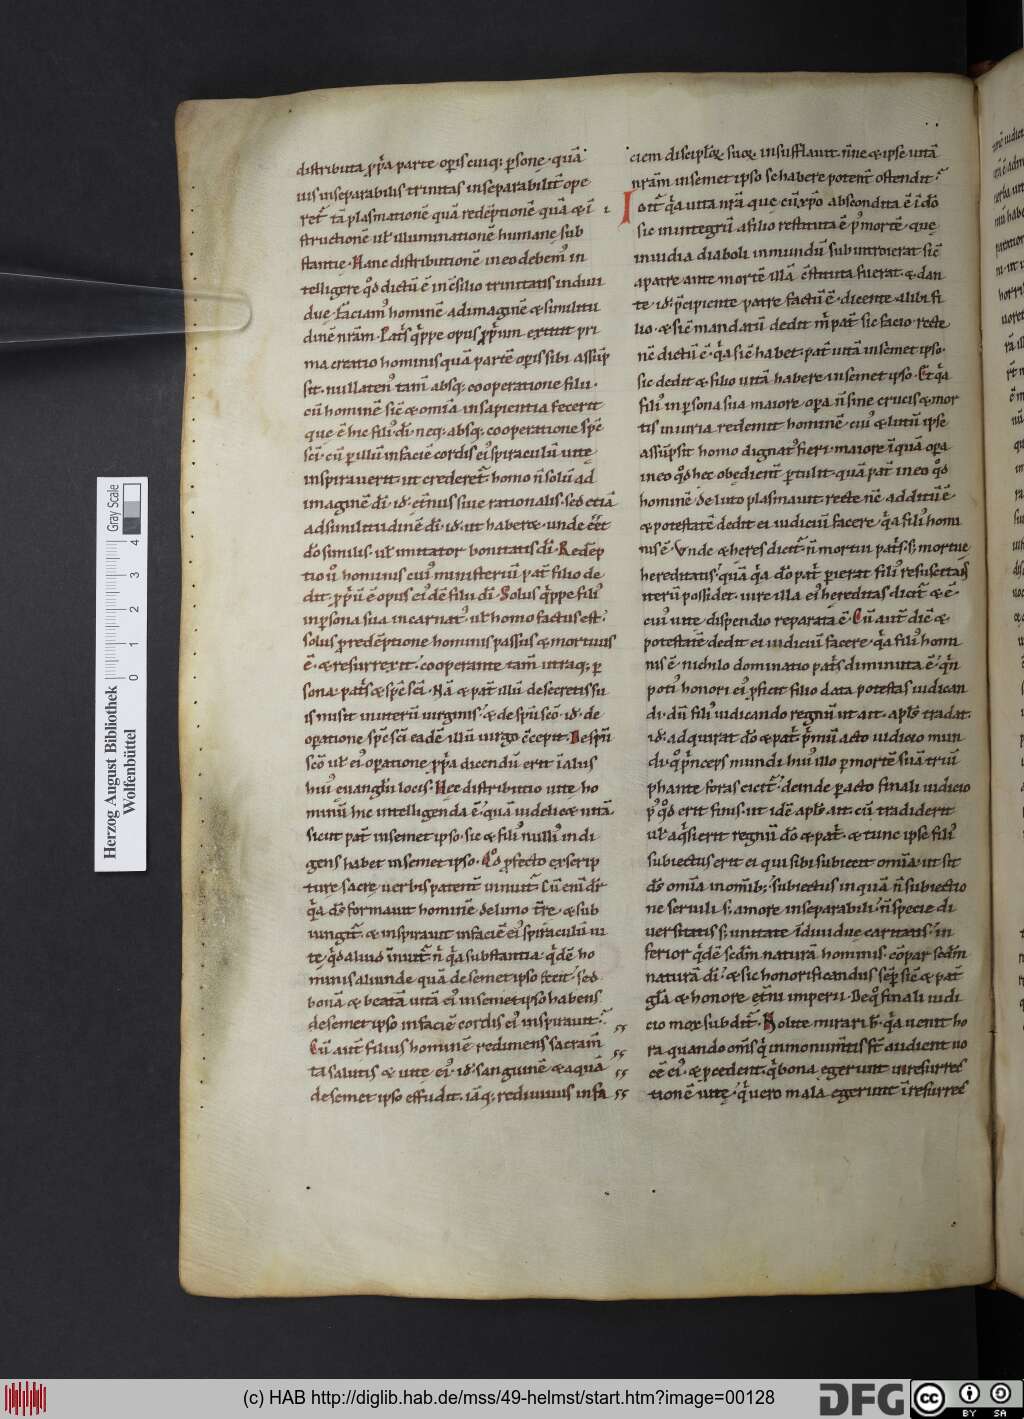 distributa ꝓp̃a parte opis cuiq; psonę· quã
uis inseparabilis trinitas inseparabilit̃ ope
ret̃ tã plasmationẽ quã redẽptionẽ quã & ĩ
structionẽ ul̃ illuminationẽ humanę sub
stantię· Hanc distributionẽ in eo debem᷒ in
telligere qd̃ dictũ ẽ in ẽsilio trinitatis indiui
duę· faciam᷒ hominẽ ad imaginẽ & similitu
dinẽ nr̃am· Patˢ q̃ppe opus ꝓp̃um extitit pri
ma creatio hominis quã partẽ opis sibi assũp
sit· nullaten᷒ tam̃ absq; cooperatione filii·
cũ hominẽ sic̃ & om̃ia in sapientia fecerit
que ẽ hic fili᷒ dĩ· neq; absq; cooperatione sp̃c
sc̃i· cũ p illũ in faciẽ cordis ei᷒ spiraculũ uitę
inspirauerit· ut crederet̃ homo ñ solũ ad
imaginẽ dĩ· id· et̃nus siue rationalis· sed etiã
ad similitudinẽ dĩ· id· ut haberet· unde ẽet
dõ similis· ul̃ imitator bonitatis dĩ· Redẽp
tio ũ hominis cui᷒ ministeriũ pat̃ filio de
dit· ꝓp̃ũ ẽ opus ei᷒dẽ filii dĩ· Solus q̃ppe fili᷒
in psona sua incarnat᷒ ul̃ homo factus est·
solus p redẽptione hominis passus & mortuus
ẽ· & resurrexit· cooperante tam̃ utraq; p
sona· patˢ & sp̃c sc̃i· Nã & pat̃ illũ de secretis su
is misit in uterũ uirginis· & de sp̃u sc̃o· id· de
opatione sp̃c sc̃i eadẽ illũ uirgo c̃cepit· De sp̃u
sc̃o ul̃ ei᷒ opatione ꝓp̃a dicendũ erit ĩ aliis
hui᷒ euanglĩi locis· Hęc distributio uitę ho
minũ hic intelligenda ẽ· quã uidelic& uitã
sicut pat̃ in semet ipso· sic & fili᷒ nulli᷒ indi
gens habet in semet ipso· Qd̃ pfecto ex scrip
turę sacrę uerbis patent̃ innuit̃· Cũ eni dr̃
q̃a ds̃ formauit hominẽ de limo t̃re· & sub
iungit̃· & inspirauit in faciẽ ei᷒ spiraculũ ui
tę· qd̃ aliud innuit̃ ñ q̃a substantia q̃dẽ ho
minis aliunde quã de semet ipso fecit· sed
bonã & beatã uitã ei᷒ in semet ipso habens
de semet ipso in faciẽ cordis ei᷒ inspirauit·
Cũ aut̃ filius hominẽ redimens sacram̃
ta salutis & uitę ei᷒· id· sanguinẽ & aquã
de semet ipso effudit· iãq; rediuiuus in fa
ciem discipl̃oꝝ suoꝝ insufflauit· ñne & ipse uitã
nr̃am in semet ipso se habere potent̃ ostendit·
Iñ q̃a uita nr̃a que cũ xp̃o abscondita ẽ ĩ dõ
sic in integrũ a filio restituta ẽ p᷒ mortẽ· quę
inuidia diaboli in mundũ subintroierat sic̃
a patre ante mortẽ illã c̃stituta fuerat· & dan
te· id· p̃cipiente patre factũ ẽ· dicente alibi fi
lio· & sic̃ mandatũ dedit m̃ pat̃ sic facio· recte
nẽ dictũ ẽ· q̃a sic̃ habet· pat̃ uitã in semet ipso·
sic dedit & filio uitã habere in semet ipso· Et q̃a
fili᷒ in psona sua maiore opa ñ sine crucis & mor
tis iniuria redemit hominẽ· cui᷒ & lutũ ipse
assũpsit homo dignat᷒ fieri· maiore ĩquã opa
in eo qd̃ hęc obedient̃ ptulit· quã pat̃ in eo qd̃
hominẽ de luto plasmauit· recte nẽ additũ ẽ·
& potestatẽ dedit ei iudiciũ facere· q̃a fili᷒ homi
nis ẽ· Unde & heres dicit̃· ñ mortui patˢ s; mortuę
hereditatis· quã q̃a dõ pat̃ pierat fili᷒ resuscitans
iterũ possidet· iure illa ei᷒ hereditas dicit̃ & ẽ·
cui᷒ uitę dispendio reparata ẽ· Cũ aut̃ diẽ &
potestatẽ dedit ei iudiciũ facere· q̃a fili᷒ homi
nis ẽ· nichilo dominatio patˢ diminuta ẽ· q̃ñ
poti᷒ honori ei᷒ pficit filio data potestas iudican
di· dũ fili᷒ iudicando regnũ ut ait apl̃s tradat·
id· adquirat dõ & pat̃· p̃mũ acto iudicio mun
di· q᷒ p̃nceps mundi hui᷒ illo p mortẽ suã triũ
phante foras eicit̃· deinde pacto finali iudicio
p᷒ qd̃ erit finis· ut idẽ apl̃s ait· cũ tradiderit
ul̃ aq̃sierit regnũ dõ & pat̃· & tunc ipse fili᷒
subiectus erit ei qui sibi subiecit om̃ia· ut sit
ds̃ om̃ia in om̃ib;· subiectus inquã ñ subiectio
ne seruili s; amore inseparabili· ñ specie di
uersitatis s; unitate ĩdiuiduę caritatis· in
ferior q̃dẽ scdm̃ naturã hominis· c̃par scdm̃
naturã dĩ· & sic honorificandus sep̃ sic̃ & pat̃
gl̃a & honore et̃ni imperii· De q᷒ finali iudi
cio mox subdit̃· Nolite mirari h̃· q̃a uenit ho
ra quando om̃s q̃ in monum̃tis st̃ audient uo
cẽ ei᷒· & pcedent q̃ bona egerunt in resurrec
tionẽ uitę· q̃ uero mala egerunt ĩ resurrec
Herzog August Bibliothek
Wolfenbüttel
0 1 2 3 4
Gray Scale
(c) HAB http://diglib.hab.de/mss/49-helmst/start.htm?image=00128
DFG
cc
BY SA